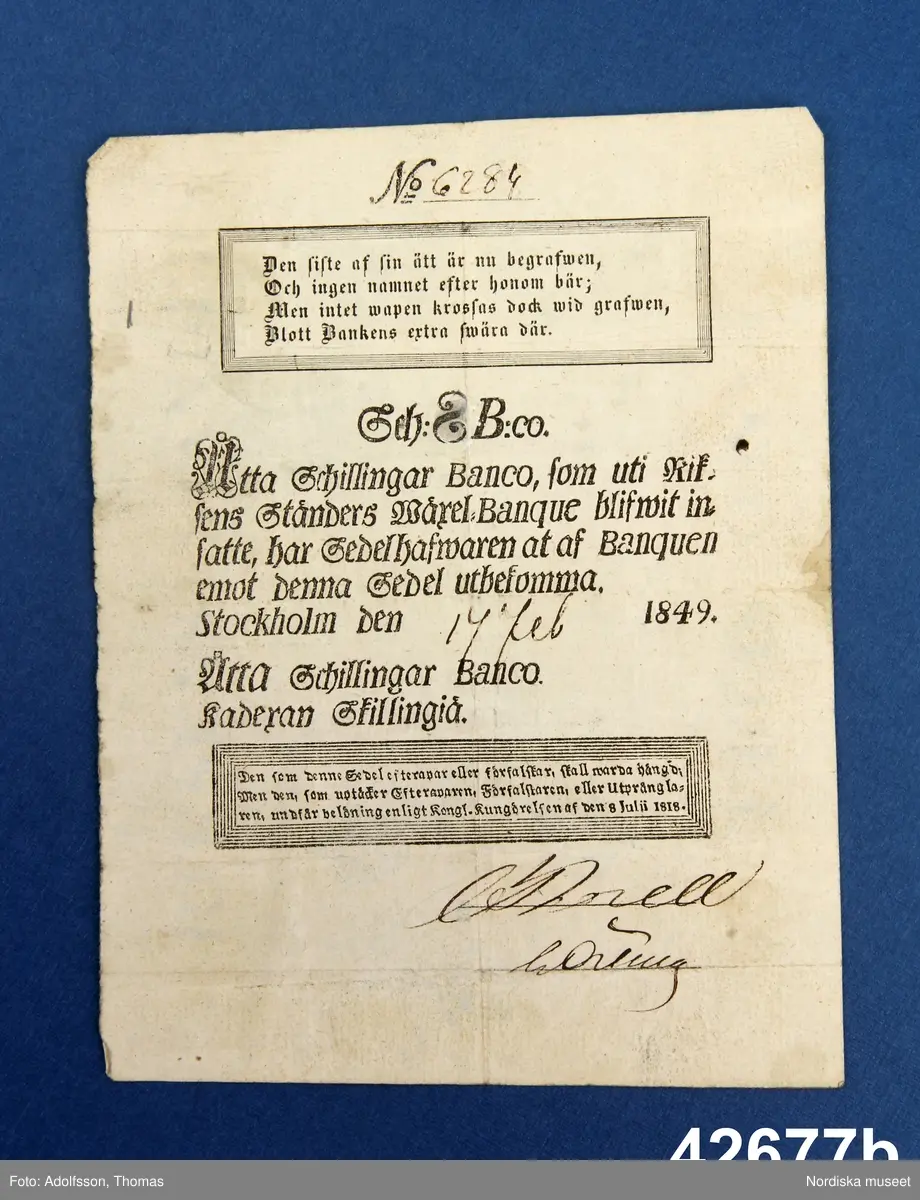 No 6284
Den siste af sin ätt är nu begrafwen,
Och ingen namnet efter honom bär;
Men intet wapen krossas dock wid grafwen,
Blott Bankens extra swära där.
Sch: 8 B:co.
Åtta Schillingar Banco, som uti Rik-
sens Ständers Wäxel-Banque blifwit in-
satte, har Sedelhafwaren at af Banquen
emot denna Sedel utbekomma.
Stockholm den 17 feb 1849.
Åtta Schillingar Banco.
Kadexan Skillingiä.
Den som denne Sedel efterapar eller förfalskar, skall warda hängd;
Men den, som uptäcker Efteraparen, Förfalskaren, eller Utprängla-
ren, undfår belöning enligt Kongl. Kungörelsen af den 8 Julii 1818.
42677b
Foto: Adolfsson, Thomas
Nordiska museet